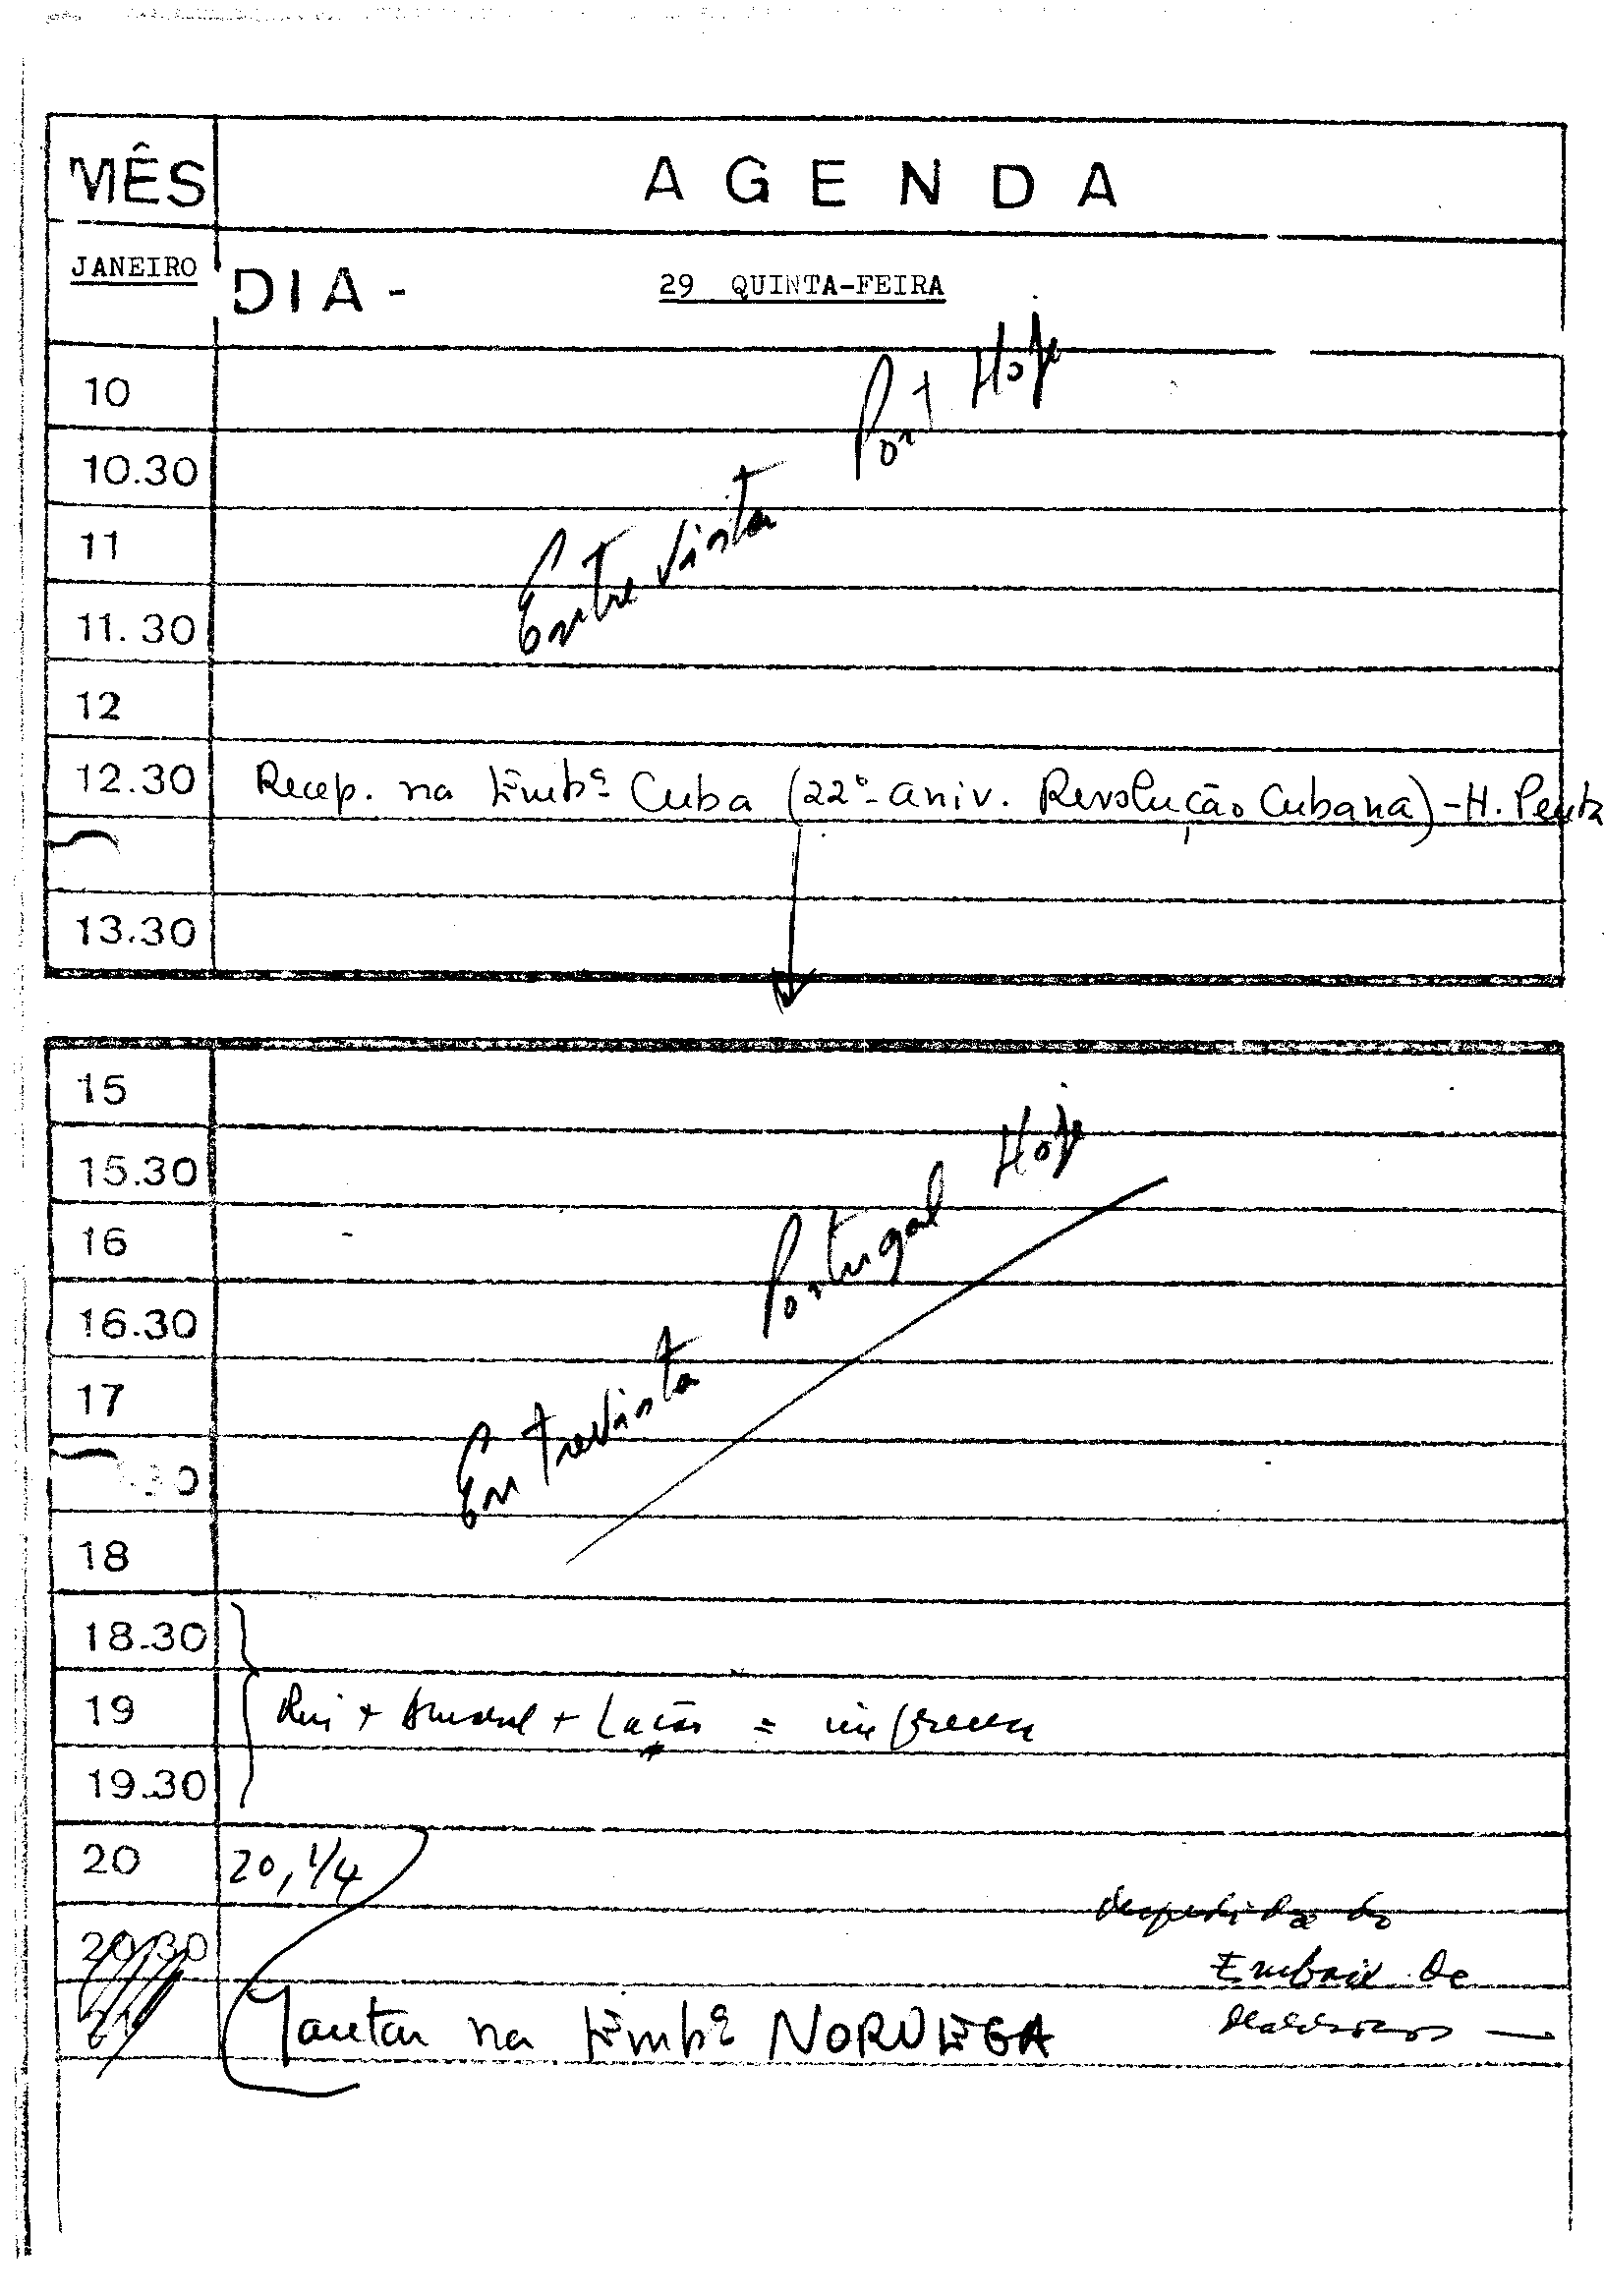 MÊS AGENDA
JANEIRO DIA - 29 QUINTA-FEIRA
10 Port Hoje
10.30
11 Entrevista
11.30
12
12.30 Recep. na Embª Cuba (22º aniv. Revolução Cubana) - H. Penta
13.30
15
15.30 Hoje
16 Portugal
16.30
17 Entrevista
.30
18
18.30
19 Rui + Amaral + Lacão =
19.30
20 20, 1/4
despedida do
20.30
Embaix de
21 Jantar na Embª NORUEGA